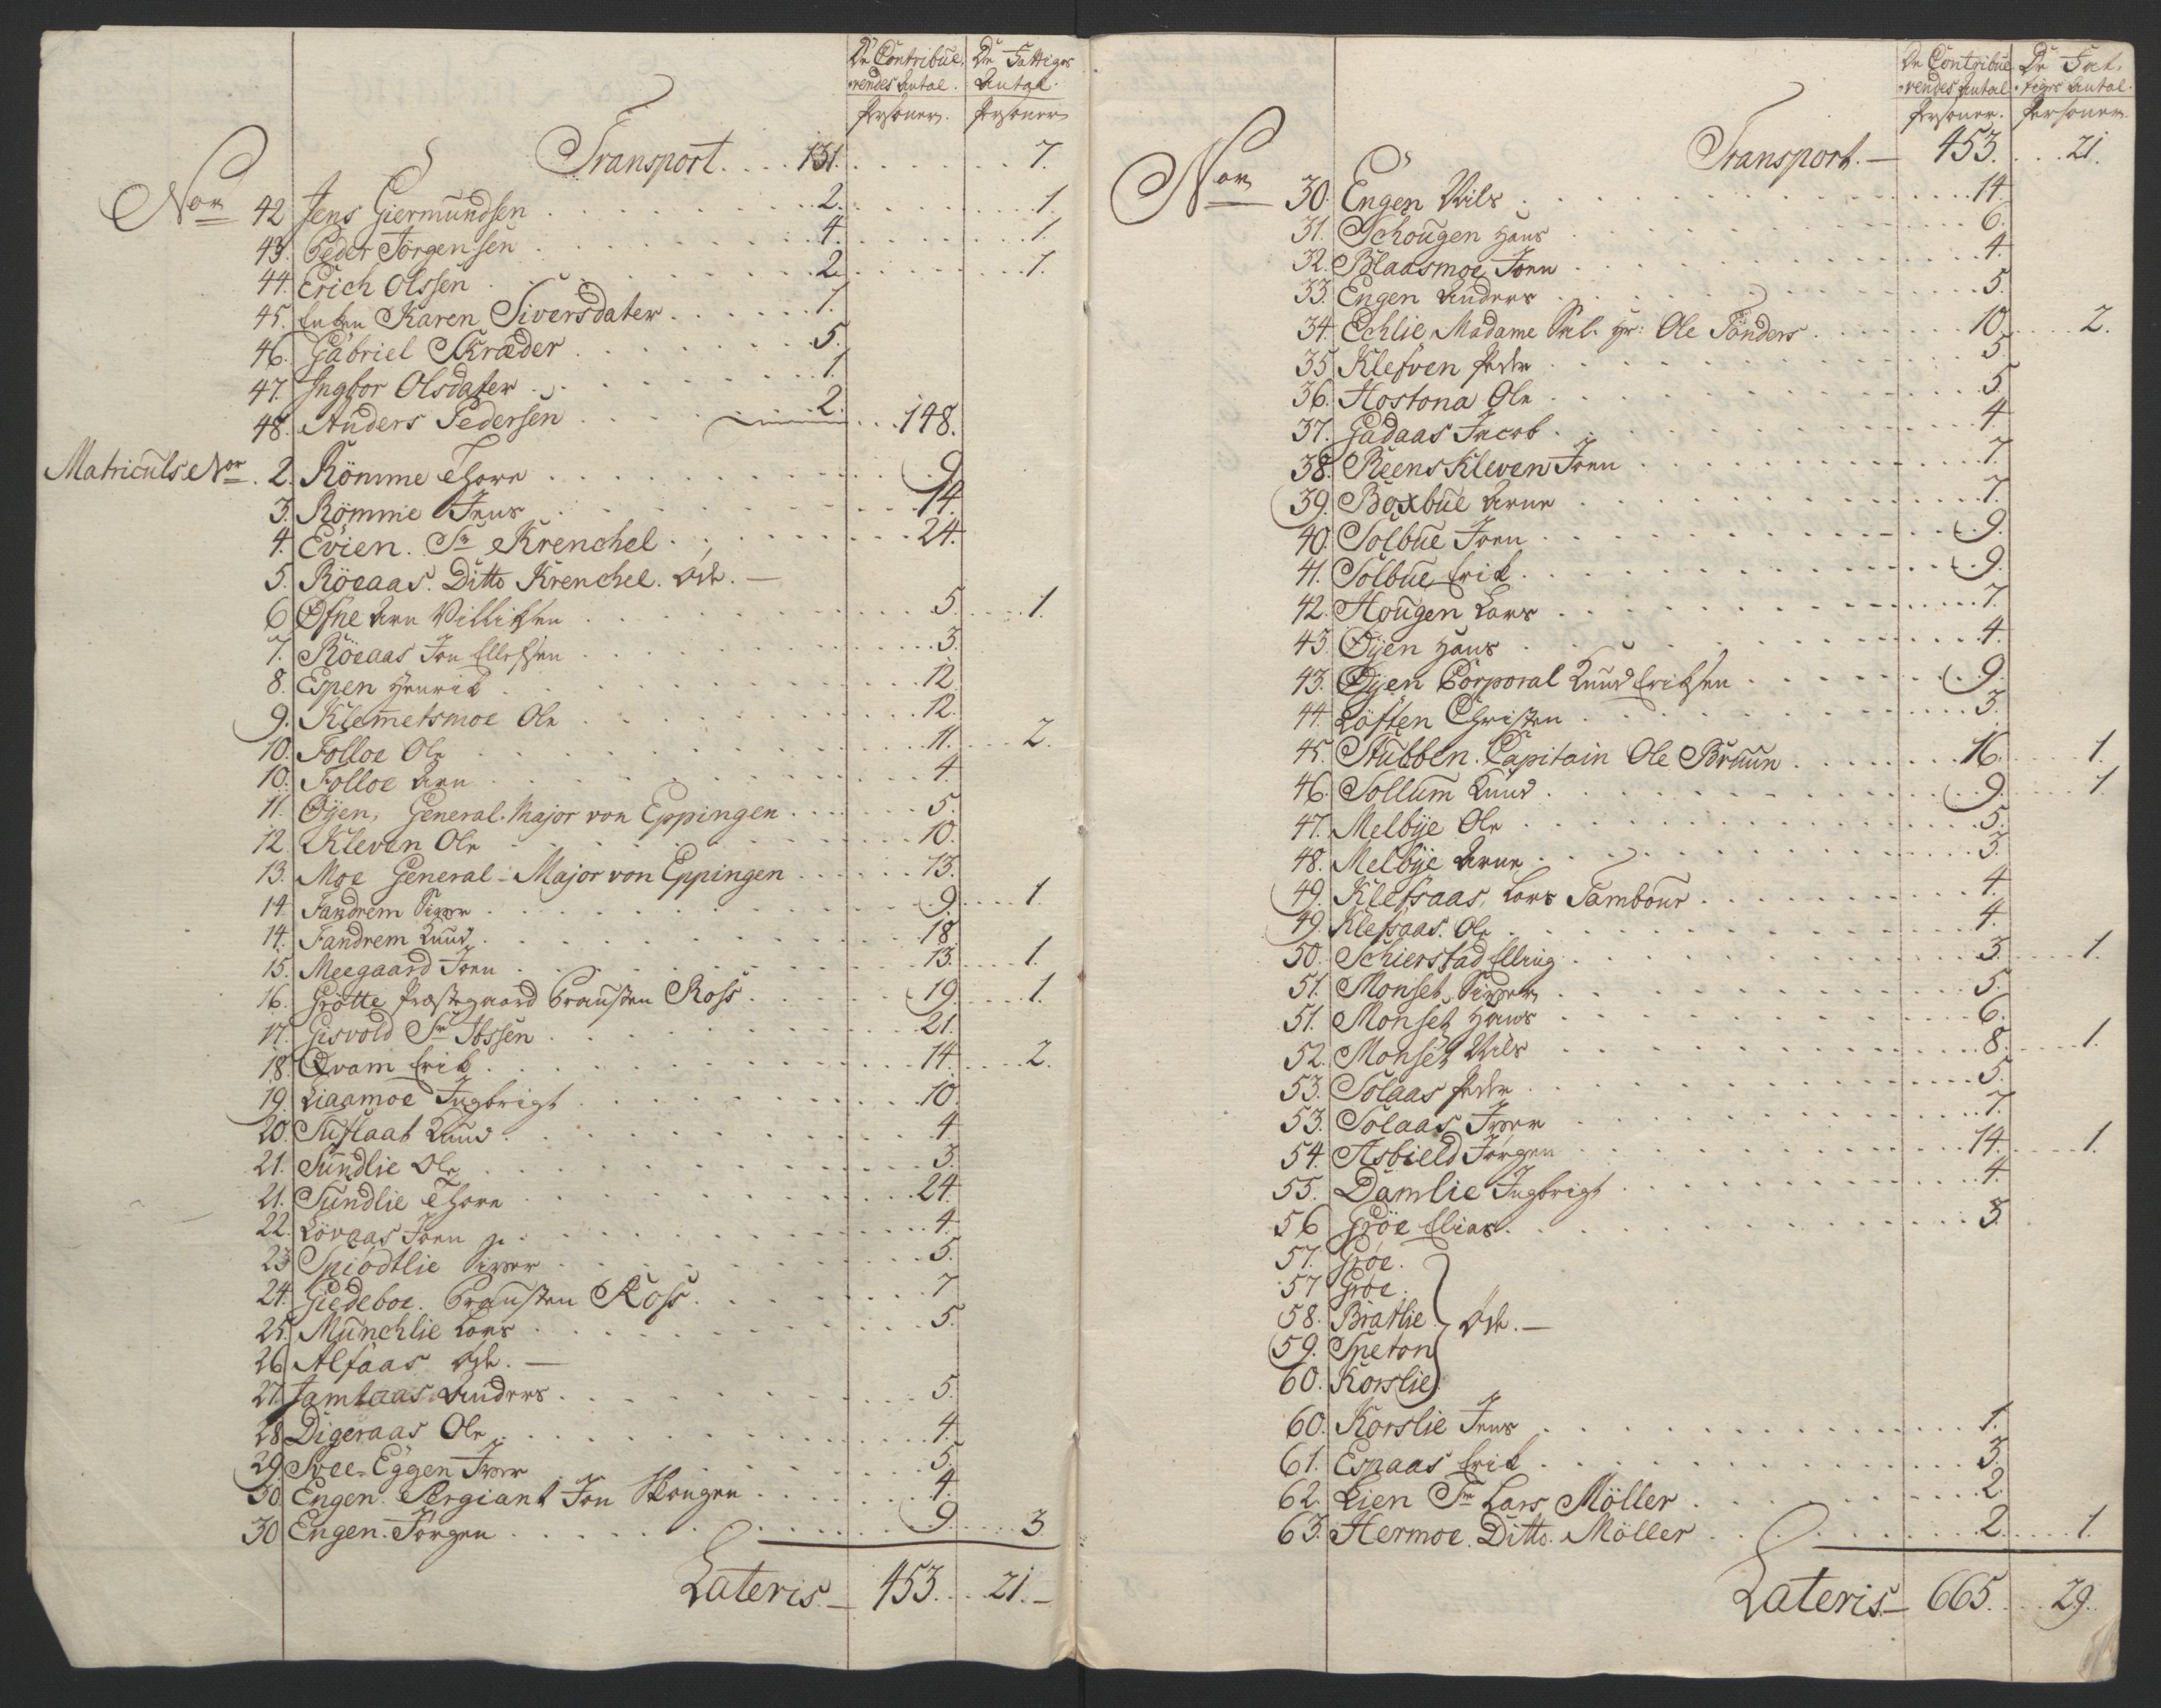 De Contribue- De Fattiges
rendes Antal. Antal.
Personer. Personer
Transport. . . 131. 7.
No 42 Jens Giermundsen 2. 1.
43. Peder Jörgensen 4. 1.
44. Erich Olssen 2. 1.
45. Enken Karen Siversdater 1.
46. Gabriel Skræder 5.
47. Ingbor Olsdater 1.
48. Anders Pedersen 2. 148.
Matriculs No. 2. Römme Thore 9.
3. Römme Jens 14.
4. Evien. Sr Krenchel 24.
5. Röeaas. Ditto Krenchel. Öde. —
6 Ofne Arn Villiksen 5. 1.
7. Röeaas Jon Ellefsen 3.
8. Espen Henrik 12
9. Klemetsmoe Ole 12.
10. Folloe Ole 11. 2.
10. Folloe Arn 4.
11. Øyen, General-Major von Eppingen 5.
12. Kleven Ole 10.
13. Moe General-Major von Eppingen 13.
14. Fandrem Siver 9. 1.
14. Fandrem Knud 18.
15. Meegaard Joen 13. 1.
16. Grötte Præstegaard Prousten Ross 19. 1.
17. Gisvold Sr Ibssen 21.
18. Qvam Erik 14. 2.
19. Liaamoe Ingbrigt 10.
20. Suflaat Knud 4.
21. Sundlie Ole 3.
21. Sundlie Thore 24.
22. Lövaas Joen 4.
23 Spiödtlie Siver 5.
24. Giedeboe. Prousten Ross 7
25. Munchlie Lars 5.
26 Alfaas Öde. —
27. Jamtaas Anders 5.
28 Digeraas Ole 4.
29 Svee-Eggen Iver 5.
30. Engen. Sergiant Jon Skougen 4.
30 Engen. Jörgen 9. 3
Lateris — 453. 21. —
De Contribue- De Fat-
rendes Antal tiges Antal.
Personer. Personer.
Transport. — 453. 21.
No 30. Engen Nils 14.
31. Schougen Hans 6.
32. Blaasmoe Joen 4.
33. Engen Anders 5.
34. Echlie, Madame Sal. Hr: Ole Tönders 10. 2.
35 Klefven Peder 5.
36. Hostona Ole 5.
37. Gadaas Jacob 4
38. Reens Kleven Joen 7.
39. Boxbue Arne 7.
40. Solbue Joen 9.
41. Solbue Erik 9.
42. Hougen Lars 7.
43 Öyen Hans 4.
43. Öyen Corporal Knud Eriksen 9.
44. Löften Christen 3.
45. Stubben. Capitain Ole Bruun 16. 1.
46. Sollum Knud 9. 1.
47. Melbye Ole 5.
48. Melbye Arne 3.
49. Klefsaas, Lars Tambour 4.
49. Klefsaas. Ole 4.
50. Schierstad Elling 3. 1.
51. Monset Siver 5.
51. Monset Hans 6.
52. Monset Nils 8. 1.
53. Solaas Peder 5.
53. Solaas Iver 7.
54. Asbield Jörgen 14. 1.
55. Damlie Ingbrigt 4.
56 Gröe Elias 3.
57. Gröe.
57 Gröe.
58. Bratlie Öde. —
59. Sneton
60. Korslie
60. Korslie Jens 1.
61. Espaas Erik 3.
62. Lien Sr Lars Möller 2.
63. Hermoe. Ditto. Möller 2. 1.
Lateris — 665. 29.